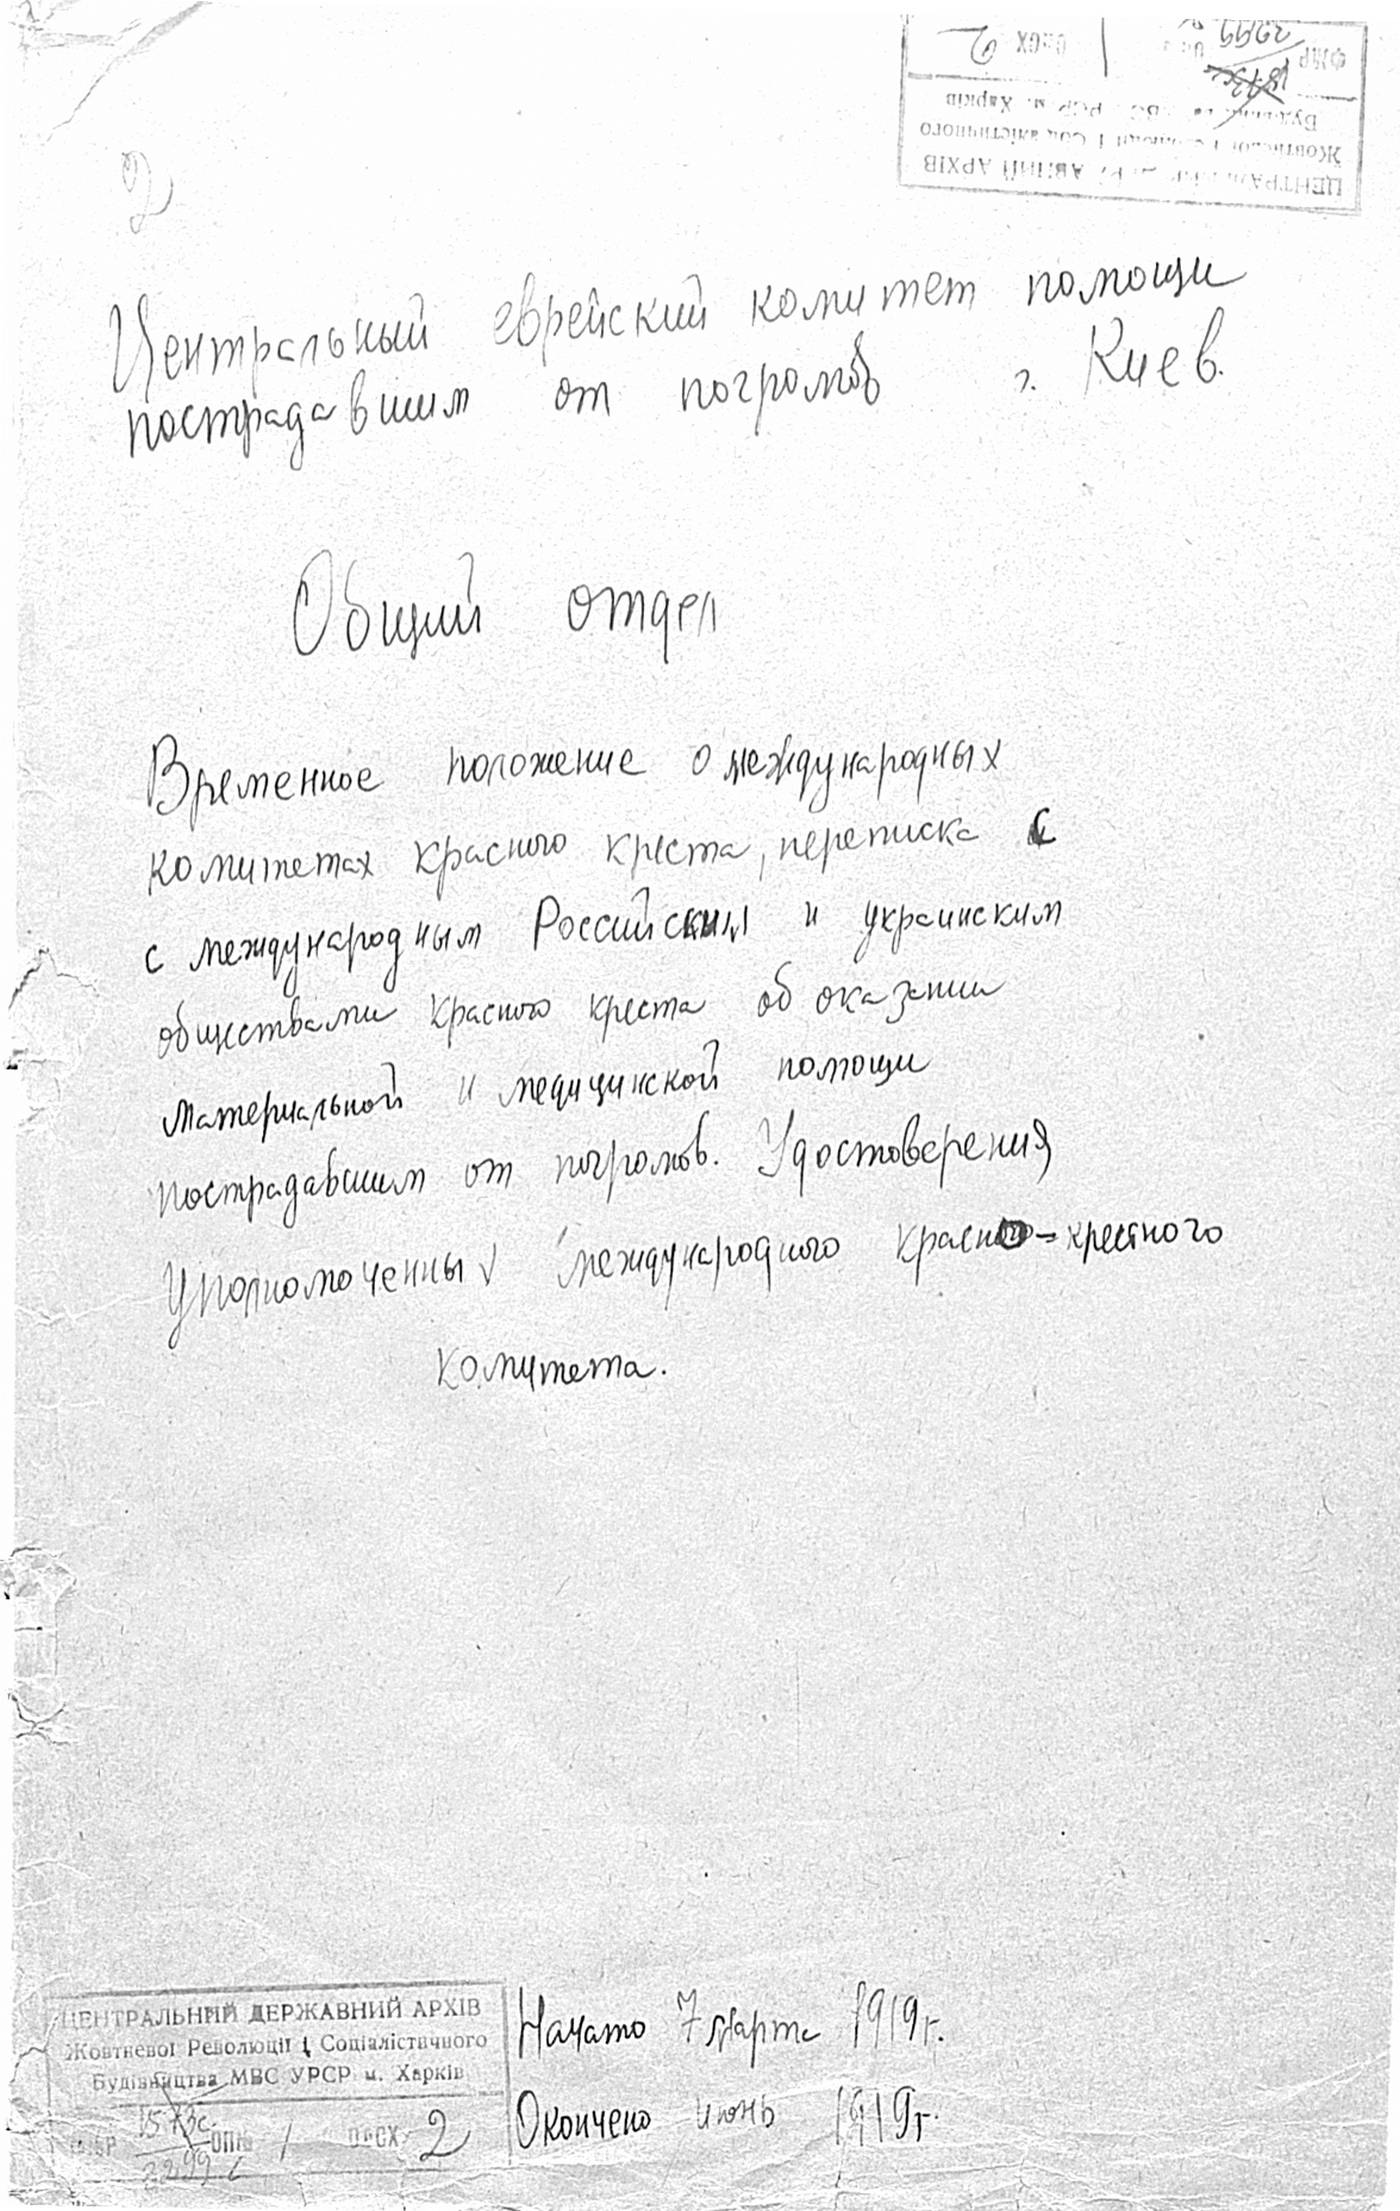 ЦЕНТРАЛЬНИЙ ДЕРЖАВНИЙ АРХІВ
Жовтневої Революції і Соціалістичного
м. Харків
ОПИС
2
2
Центральный еврейский комитет помощи
пострадавшим от погромов г. Киев.
Общий отдел
Временное положение о международных
комитетах красного креста, переписка с
с международным Российским и украинским
обществами красного креста об оказании
материальной и медицинской помощи
пострадавшим от погромов. Удостоверения
уполномоченных международного красно-крестного
комитета.
ЦЕНТРАЛЬНИЙ ДЕРЖАВНИЙ АРХІВ
Жовтневої Революції і Соціалістичного
Будівництва МВС УРСР м. Харків
1573с ОПИС 1 2
2299с
Начато 7 марта 1919 г.
Окончено июнь 1919 г.